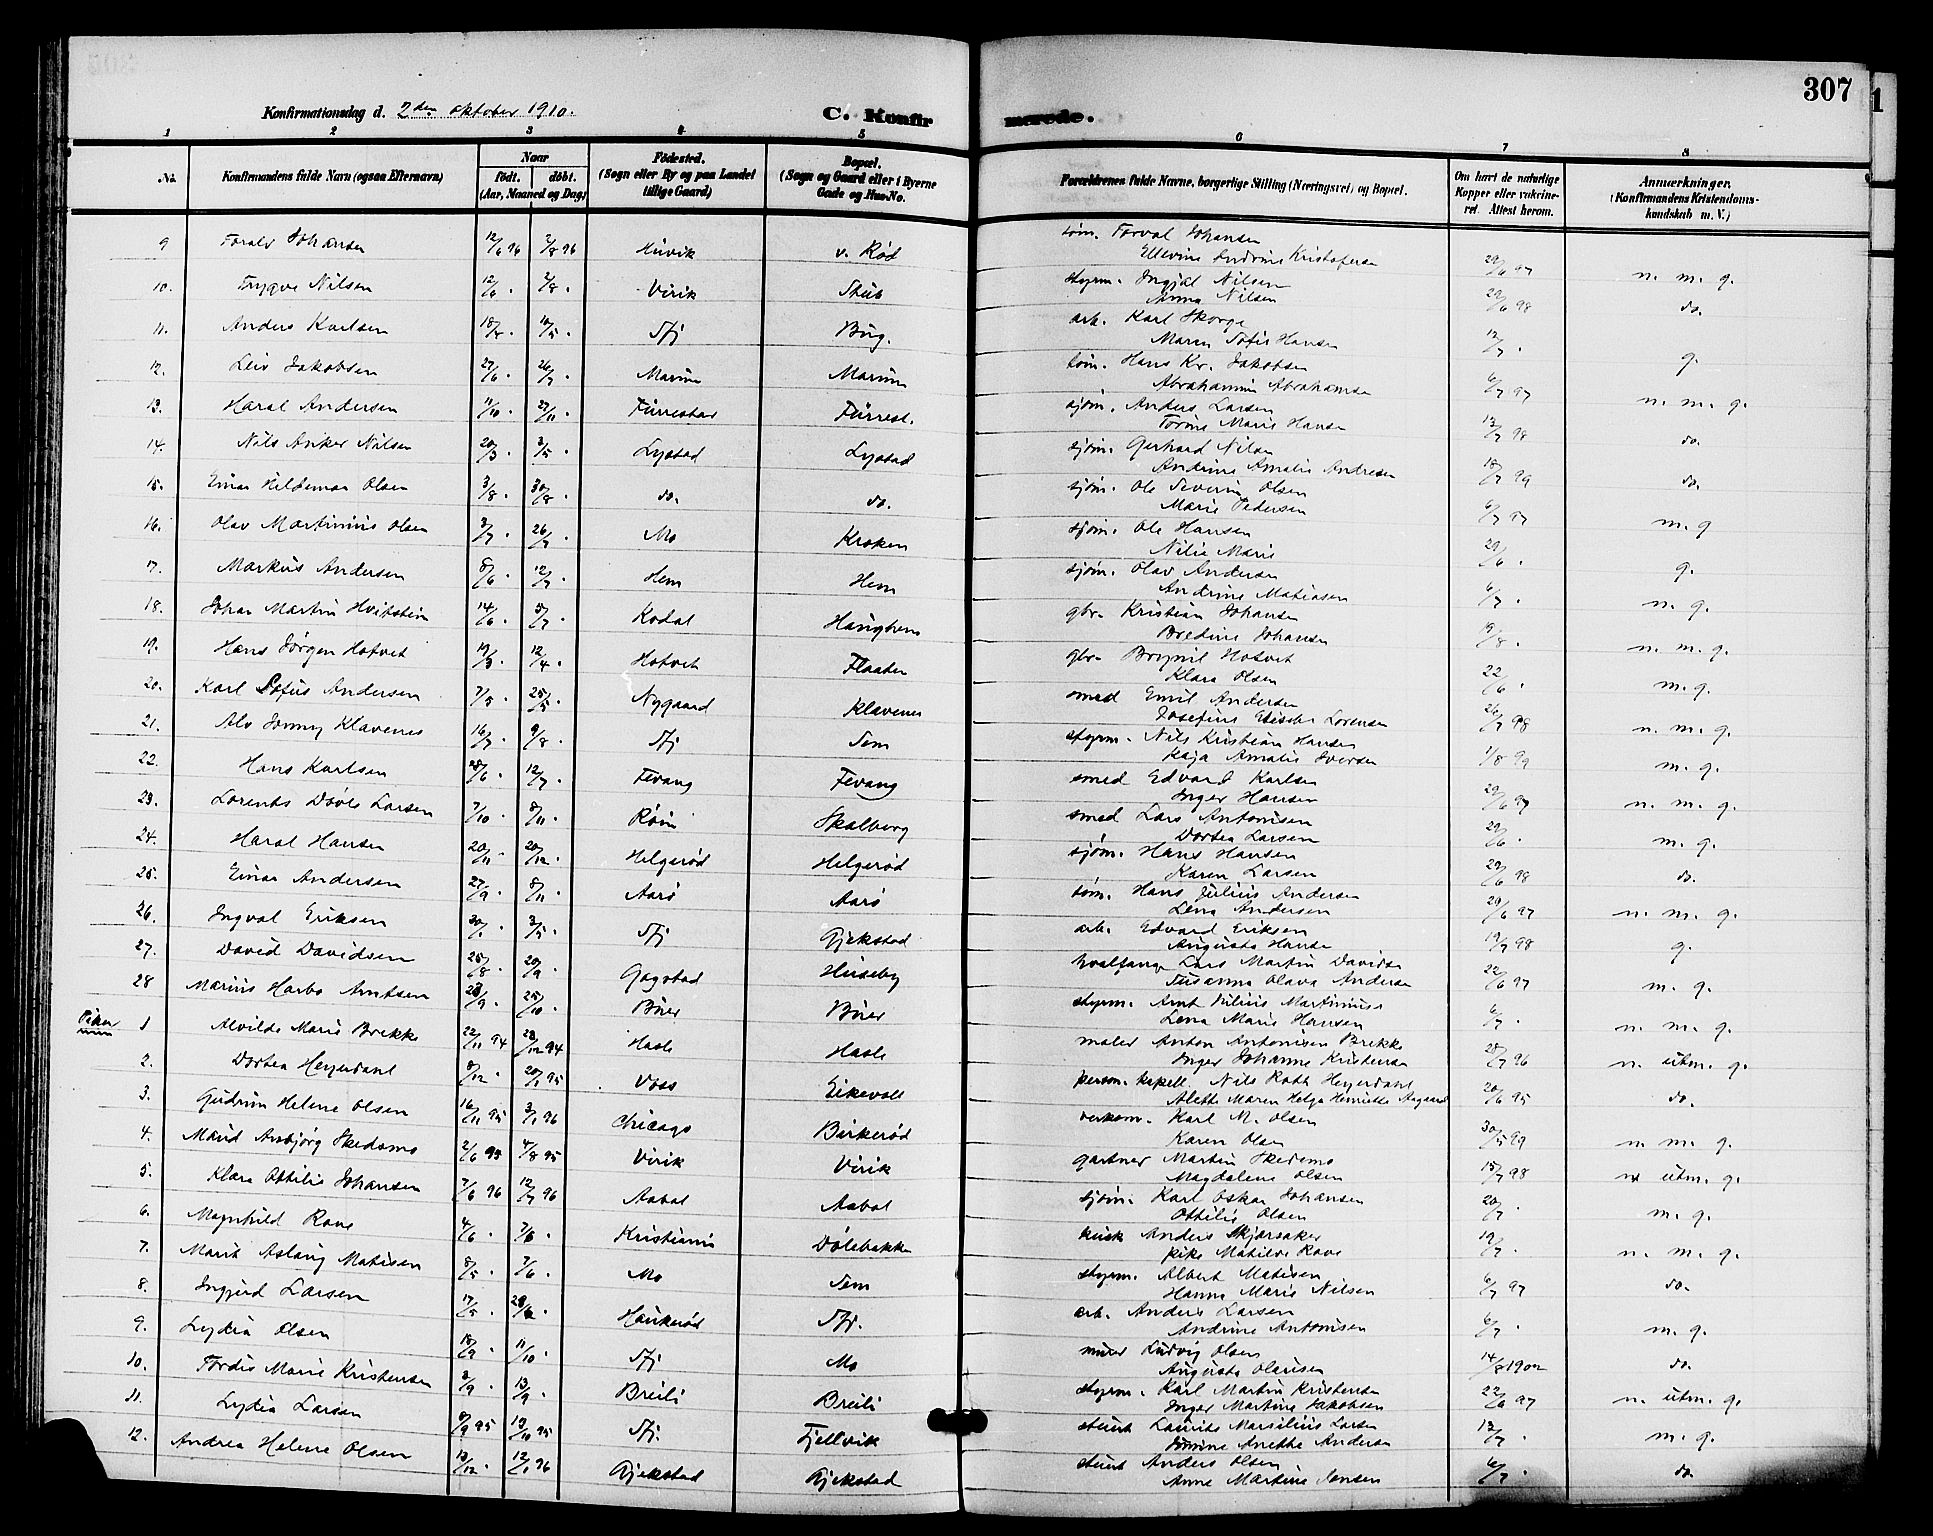 307
Konfirmationsdag d. 2den oktober 1910.
C. Konfirmerede.
1 2 3 4 5 6 7 8
No. Konfirmandens fulde Navn (ogsaa Efternavn) Naar født. døbt. (Aar, Maaned og Dag) Fødested. (Sogn eller By og paa Landet tillige Gaard) Bopæl. (Sogn og Gaard eller i Byerne Gade og Hus-No. Forældrenes fulde Navne, borgerlige Stilling (Næringsvei) og Bopæl. Om havt de naturlige Kopper eller vakcineret. Attest herom. Anmærkninger. (Konfirmandens Kristendomskundskab m. V.)
9 Toralv Johansen 12/6 96 2/8 96 v. Rød tøm. Torval Johansen
Kristofersen 29/6 97 n. m. g.
10. Trygve Nilsen 12/6 . 2/8 . Virik Stub styrm. Ingjal Nilsen
Anna Nilsen 29/6 98 do.
11. Anders Karlsen Sfj Bug. arb. Karl Skorge
Maren Sofie Hansen 12/7 . g.
12. Leiv Jakobsen 27/6 . 26/7 . Marum Marum tøm. Hans Kr. Jakobsen
Abrahamine Abrahamsen 6/7 97 n. m. g.
13. Haral Andersen 11/10 . 27/11 . Furrestad Furrest. sjøm. Anders Larsen
Torine Marie Hansen 12/7 98 do.
14. Nils Anker Nilsen 20/3 . 3/5 . Lystad Lystad sjøm. Gerhard Nilsen
Andrine Amalie Andresen 18/7 99 do.
15. Einar Hildemar Olsen 3/8 . 30/8 . do. do. sjøm. Ole Severin Olsen
Marie Pedersen 6/7 97 m. g
16. Olav Martinius Olsen 3/7 . 26/7 . Mo Kroken sjøm. Ole Hansen
Nilia Marie 29/6 . g.
17. Markus Andersen 8/6 . 12/7 . Hem Hem sjøm. Olav Andersen
Andrine Matiasen 6/7 . n. g.
18. Johan Martin Hvitstein 14/6 . 5/7 . Kodal Haughem gbr. Kristian Johansen
Bredine Johansen 19/8 . n. m. g.
19. Hans Jørgen Hotvet 19/3 . 12/4 . Hotvet Flaaten gbr. Brynil Hotvet
Klara Olsen 22/6 . m. g.
20. Karl Sofus Andersen 7/5 . 25/5 . Nygaard Klavenes smed Emil Andersen
Josefine Lorensen 26/7 98 n. m. g.
21. Alv Jonny Klavenes 16/7 . 9/8 . Sfj Sem styrm. Nils Kristian Hansen
Kaja Amalie Iversen 1/8 99 m. g.
22. Hans Karlsen 28/6 . 12/7 . Fevang Fevang smed Edvard Karlsen
Inger Hansen 29/6 97 n. m. g.
23. Lorents Larsen 7/10 . 8/11 . Skalberg smed Lars Antonisen
Dortea Larsen 29/6 . m. g.
24. Haral Hansen 20/11 . 20/12 . Helgerød Helgerød sjøm. Hans Hansen
Karen Larsen 29/6 98 do.
25. Einar Andersen 27/9 . 8/11 . Aarø Aarø tøm. Hans Julius Andersen
Lena Andersen 29/6 97 n. m. g.
26. Ingval Eriksen 30/1 . 3/5 . Sfj Gjekstad arb. Edvard Eriksen
Augusta Hansen 19/7 98 g.
27. David Davidsen 25/8 . 20/9 . Gogstad Huseby hvalfanger Lars Martin Davidsen
Susanna Olava Andersen 22/6 97 m. g.
28 Marius Harbo Arntsen 23/9 . 25/10 . Buer Buer styrm. Arnt Julius Martinius
Lena Marie Hansen 6/7 . n. m. g.
Piker
1 Alvilde Marie Brekke 22/11 94 23/12 94 Hasle Hasle maler Anton Antonisen Brekke
Inger Johanne Kristensen 28/7 96 n. utm. g.
2. Dortea Heyerdahl 8/12 . 20/1 95 Voss Eikevoll person. kapell. Nils Roth Heyerdahl
Alette Maren Helga Henriette Aagaard 20/6 95 do.
3. Gudrun Helene Olsen 16/11 95 3/1 96 Chicago Birkerød verksm. Karl M. Olsen
Karen Olsen 30/5 99 n m. g.
4. Maud Asbjørg Skedsmo 2/6 95 4/8 95 Virik Virik gartner Martin Skedsmo
Magdalene Olsen 15/7 98 utm. g.
5. Klara Ottilie Johansen 7/6 96 12/7 96 Aabol Aabol sjøm. Karl Oskar Johansen
Ottilie Olsen 20/7 . m. g.
6. Magnhild Rove 4/6 . 7/6 . Kristiania Dølebakken kusk Anders Skjørsaker
pike Matilde Rove 19/7 . n. m. g.
7. Marit Aslaug Matisen 8/5 . 7/6 . Mo Sem styrm. Albert Matisen
Hanna Marie Nilsen 6/7 97 do.
8. Ingjerd Larsen 17/5 . Haukerød Sfj. arb. Anders Larsen
Andrine Antonisen 6/7 . m. g.
9. Lydia Olsen 18/9 . 11/10 . Sfj Mo murer Ludvig Olsen
Augusta Olausen 1902 do.
10. Tordis Marie Kristensen 3/9 . 13/9 . Breili Breili styrm. Karl Martin Kristensen
Inger Martine Jakobsen 22/6 97 n. utm. g.
11. Lydia Larsen 8/9 95 13/10 95 Sfj. Fjellvik stuert Laurits Marselius Larsen
Anette Andersen 12/7 . m. g.
12. Andrea Helene Olsen 13/12 . 12/1 96 Gjekstad Gjekstad stuert Anders Olsen
Anne Martine Jensen 6/7 . do.